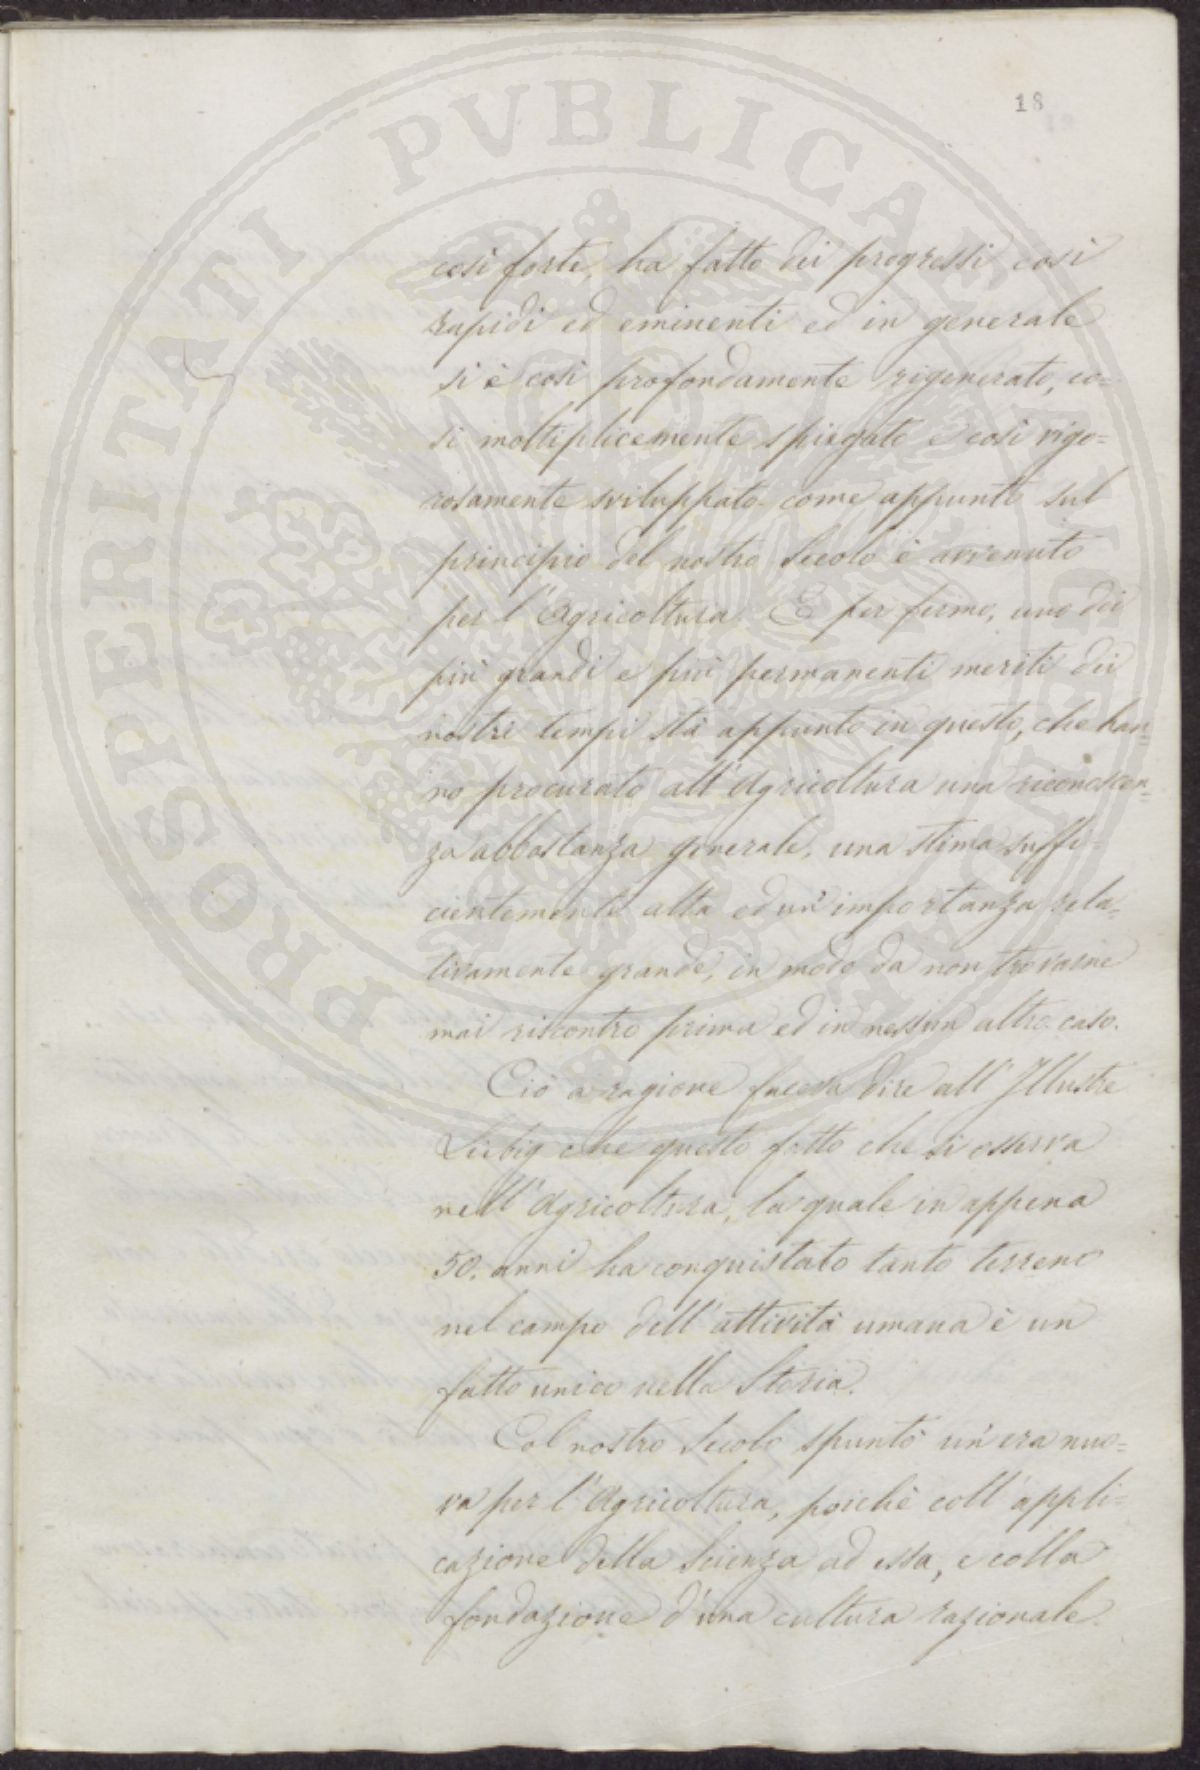 18
PROSPERITATI PVBLICAE AVGENDAE
così forte, ha fatto dei progressi così
rapidi ed eminenti ed in generale
si è così profondamente rigenerato, co=
sì moltiplicemente spiegato e così vigo=
rosamente sviluppato come appunto sul
principio del nostro Secolo è avvenuto
per l'Agricoltura. E per fermo, uno dei
più grandi e più permanenti meriti dei
nostri tempi stà appunto in questo, che han=
no procurato all'Agricoltura una riconoscen=
za abbastanza generale, una stima suffi=
cientemente alta ed un'importanza rela=
tivamente grande, in modo da non trovarne
mai riscontro prima ed in nessun altro caso.
Ciò a ragione faceva dire all'Illustre
Liebig che questo fatto che si osserva
nell'Agricoltura, la quale in appena
50. anni ha conquistato tanto terreno
nel campo dell'attività umana è un
fatto unico nella Storia.
Col nostro Secolo spuntò un'era nuo=
va per l'Agricoltura, poichè coll'appli=
cazione della Scienza ad essa, e colla
fondazione d'una cultura razionale